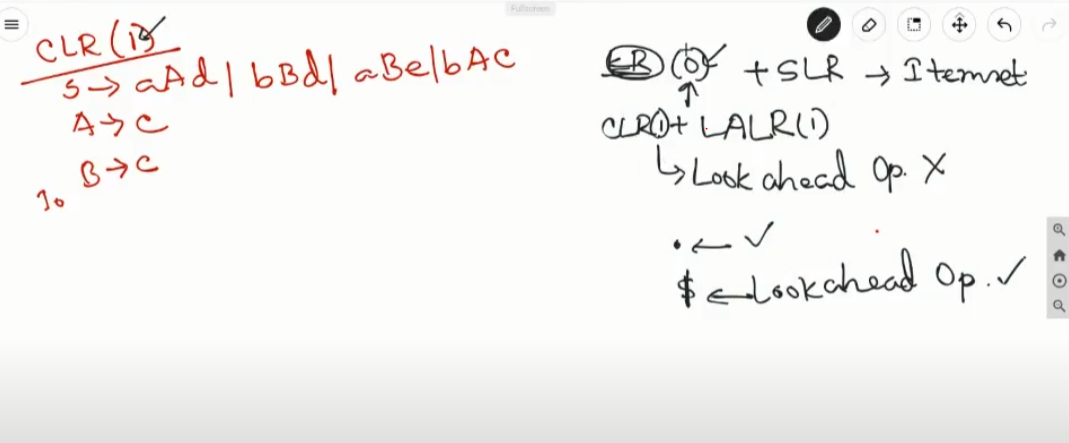 Fullscreen
CLR (1)
S → aAd | bBd | aBe | bAC
A → C
B → C
I0
LR (0) + SLR → Itemset
CLR(1) + LALR(1)
↳ Look ahead Op. X
• ← ✓
$ ← Lookahead Op. ✓